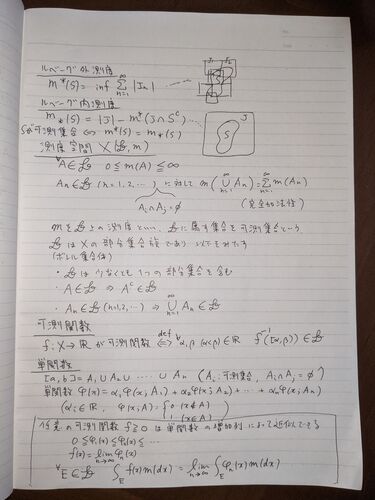 ルベーグ外測度
m*(S) = inf Σ_{n=1}^{∞} |Jn| ・・・ J1 J2
ルベーグ内測度
m*(S) = |J| − m*(J∩S^c) ・・・ S J
Sが可測集合 ⇔ m*(S) = m*(S)
測度空間 X(ℒ, m)
∀A∈ℒ 0≦m(A)≦∞
An∈ℒ (n=1,2,…) に対して m(∪_{n=1}^{∞} An) = Σ_{n=1}^{∞} m(An)
Ai∩Aj=φ (完全加法性)
mをℒ上の測度といい、ℒに属す集合を可測集合という
ℒはXの部分集合族であり以下をみたす
(ボレル集合体)
・ℒは少なくとも1つの部分集合を含む
・A∈ℒ ⇒ A^c∈ℒ
・An∈ℒ (n=1,2,…) ⇒ ∪_{n=1}^{∞} An∈ℒ
可測関数
f: X→ℝ が可測関数 ⇔def ∀α,β (α<β)∈ℝ f^{-1}([α,β))∈ℒ
単関数
[a,b] = A1∪A2∪・・・∪An (Ai:可測集合, Ai∩Aj=φ)
単関数 φ(x) = α1φ(x;A1)+α2φ(x;A2)+…+αnφ(x;An)
(αi∈ℝ, φ(x;A) = {0 (x∉A)
1 (x∈A))
任意の可測関数 f≧0 は単関数の増加列によって近似できる
0≦φ1(x)≦φ2(x)≦…
f(x) = lim_{n→∞} φn(x)
∀E∈ℒ ∫_E f(x)m(dx) = lim_{n→∞} ∫_E φn(x)m(dx)